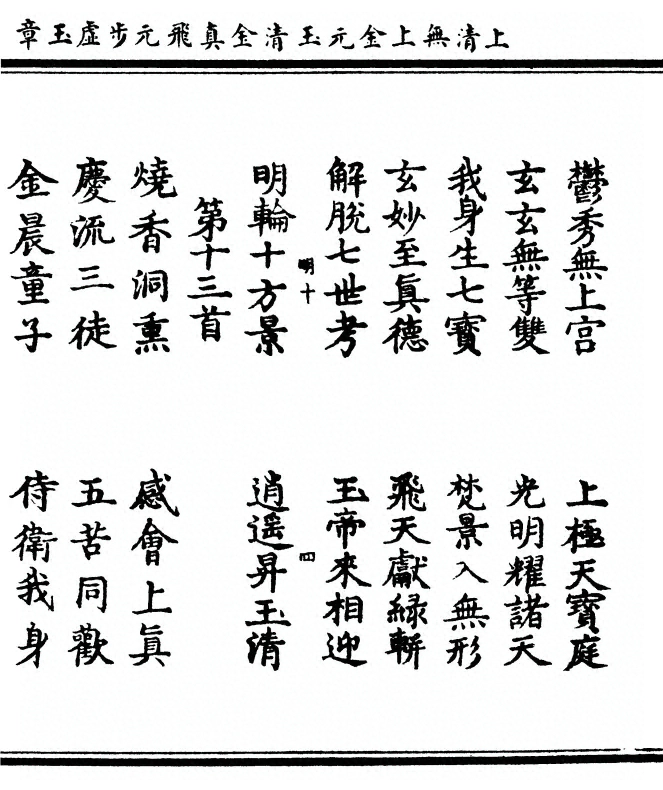 上清無上金元玉清金真飛元步虛玉章
鬱秀無上宮 上極天寶庭
玄玄無等雙 光明耀諸天
我身生七寶 梵景入無形
玄妙至眞德 飛天獻緑輧
解脫七世考 玉帝來相迎
明十 四
明輪十方景 逍遥昇玉清
第十三首
燒香洞熏 感會上眞
慶流三徒 五苦同歡
金晨童子 侍衛我身